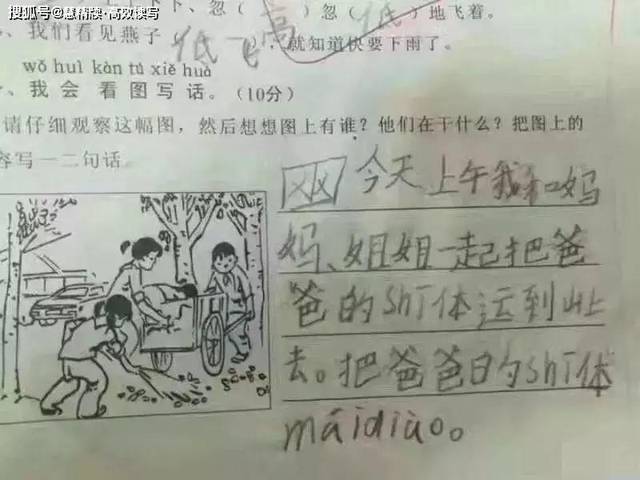 搜狐号@慧精读·高效读写
下、忽（高）忽（低）地飞着。
、我们看见燕子低飞，就知道快要下雨了。
wǒ huì kàn tú xiě huà
、我会看图写话。（10分）
请仔细观察这幅图，然后想想图上有谁？他们在干什么？把图上的
容写一二句话。
今天上午我和妈
妈、姐姐一起把爸
爸的shī体运到山上
去。把爸爸的shī体
máidiào。